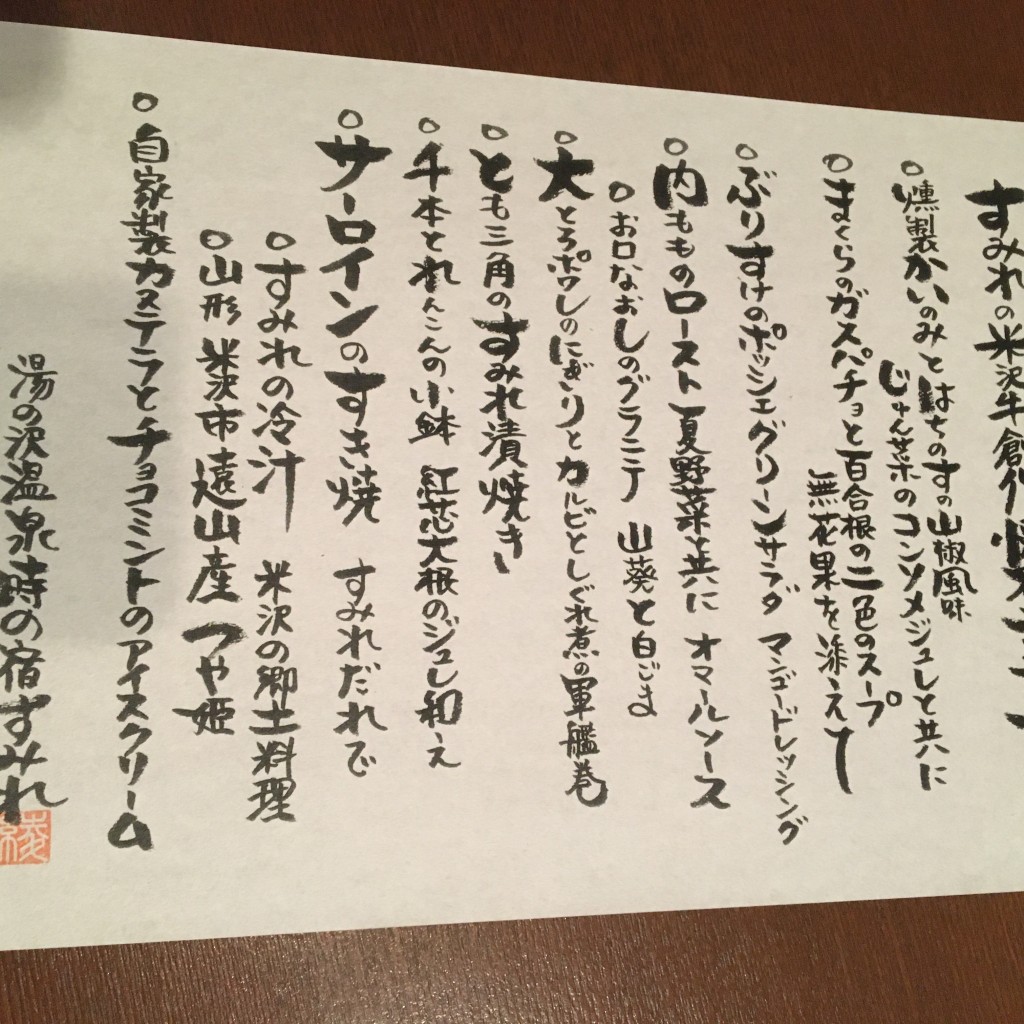 すみれの米沢牛創作懐石
燻製かいのみとはちのすの山椒風味
じゅん菜のコンソメジュレと共に
まくらのガスパチョと百合根の二色のスープ
無花果を添えて
ぶりすけのポッシェグリーンサラダ マンゴードレッシング
内もものロースト夏野菜と共に オマールソース
お口なおしのグラニテ 山葵と白ごま
大とろポワレのにぎりとカルビとしぐれ煮の軍艦巻
とも三角のすみれ漬焼き
千本とれんこんの小鉢 紅芯大根のジュレ和え
サーロインのすき焼 すみれだれで
すみれの冷汁 米沢の郷土料理
山形 米沢市遠山産 つや姫
自家製カステラとチョコミントのアイスクリーム
湯の沢温泉時の宿すみれ
綾